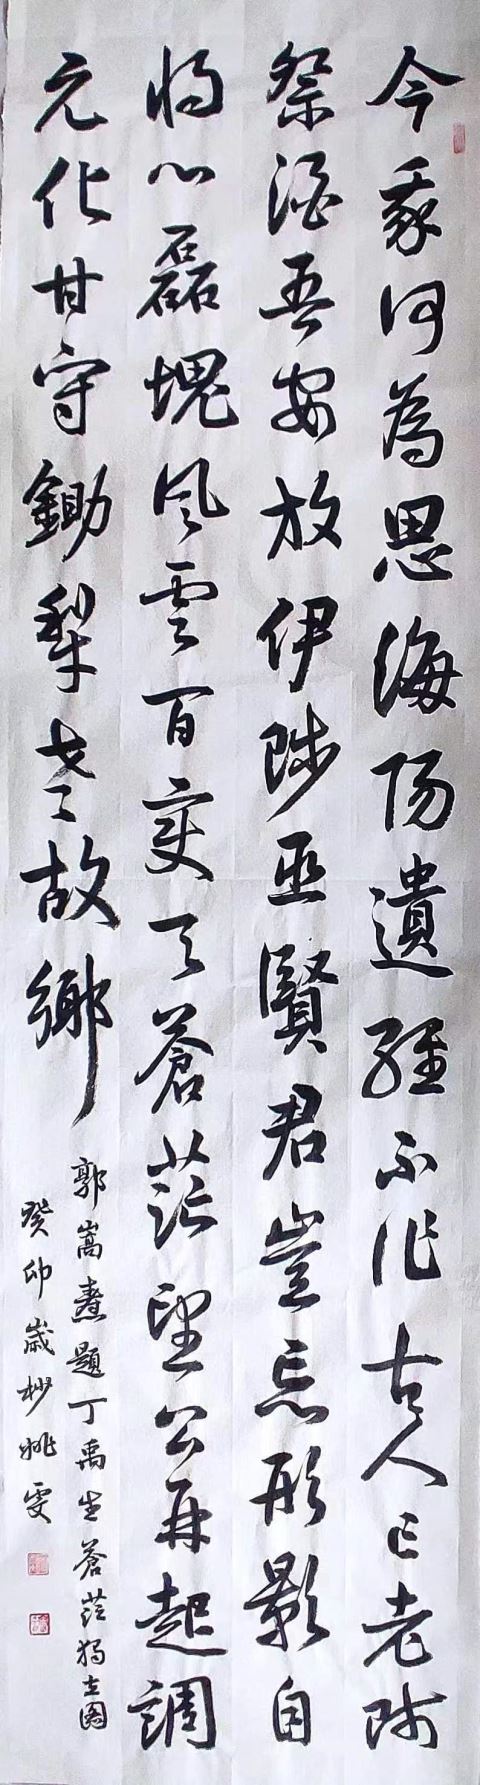 今我何為思海陽遺經不作古人亡老師
祭酒吾安放伊陟巫賢君豈忘形影自
將心磊塊風雲百變天蒼茫望公再起調
元化甘守鋤犁老故鄉
郭嵩燾題丁禹生蒼茫獨立圖
癸卯歲杪姚雯